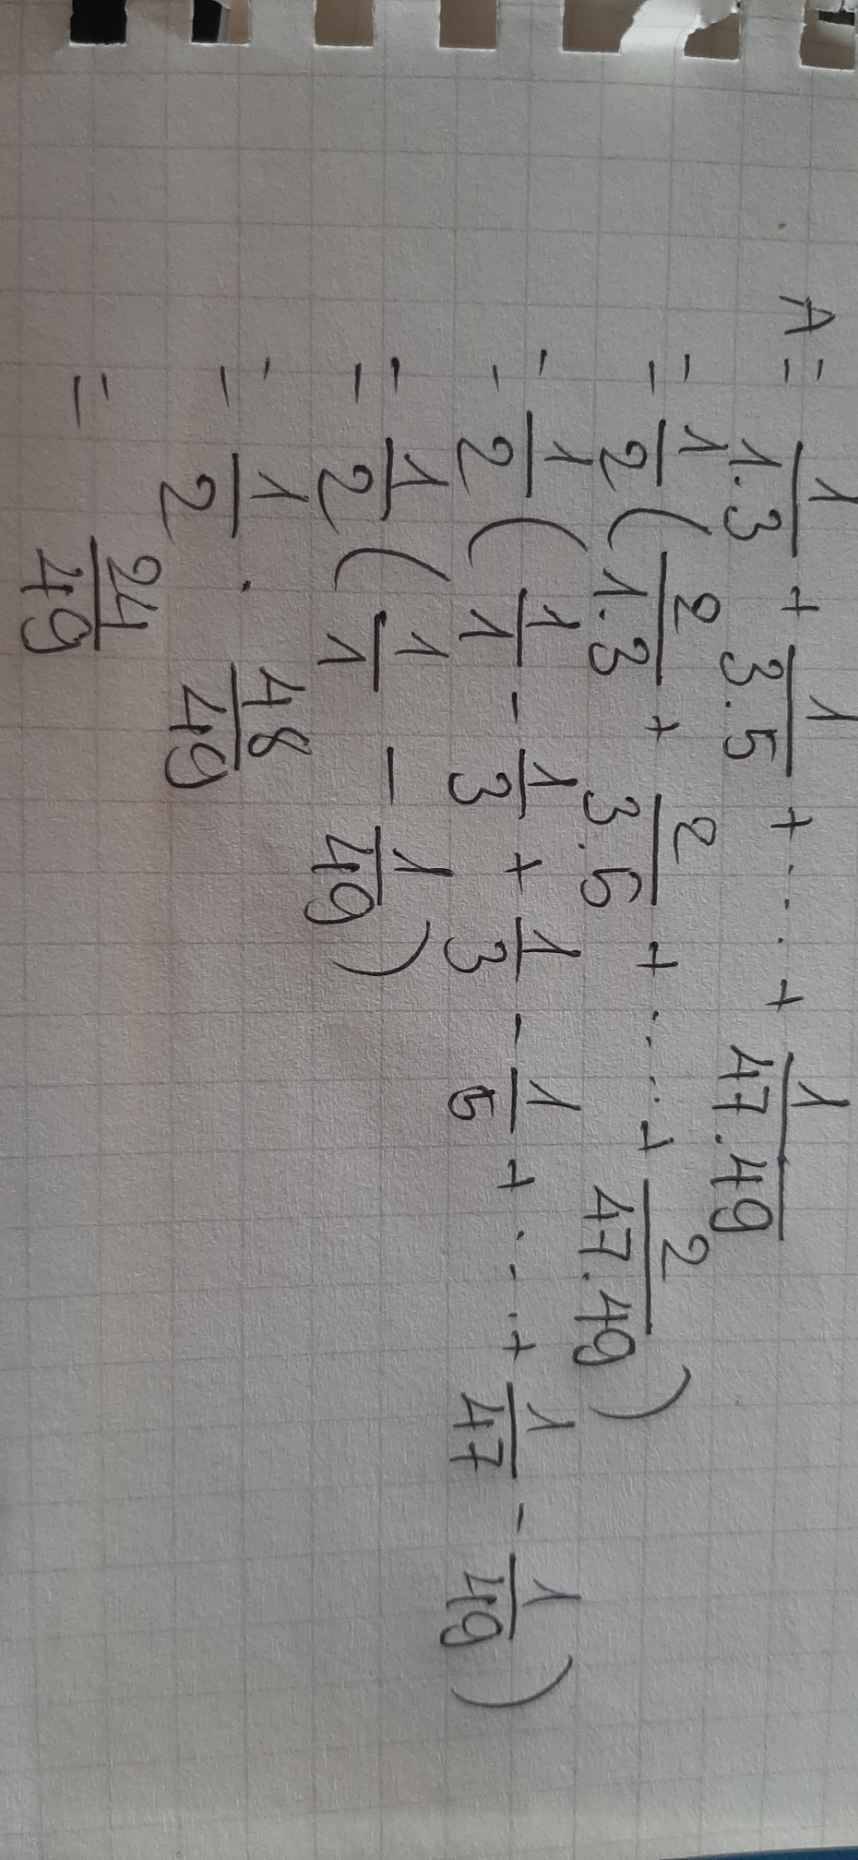 A = 1/1.3 + 1/3.5 + .... + 1/47.49
= 1/2 ( 2/1.3 + 2/3.5 + .... + 2/47.49 )
= 1/2 ( 1/1 - 1/3 + 1/3 - 1/5 + .... + 1/47 - 1/49 )
= 1/2 ( 1/1 - 1/49 )
= 1/2 . 48/49
= 24/49